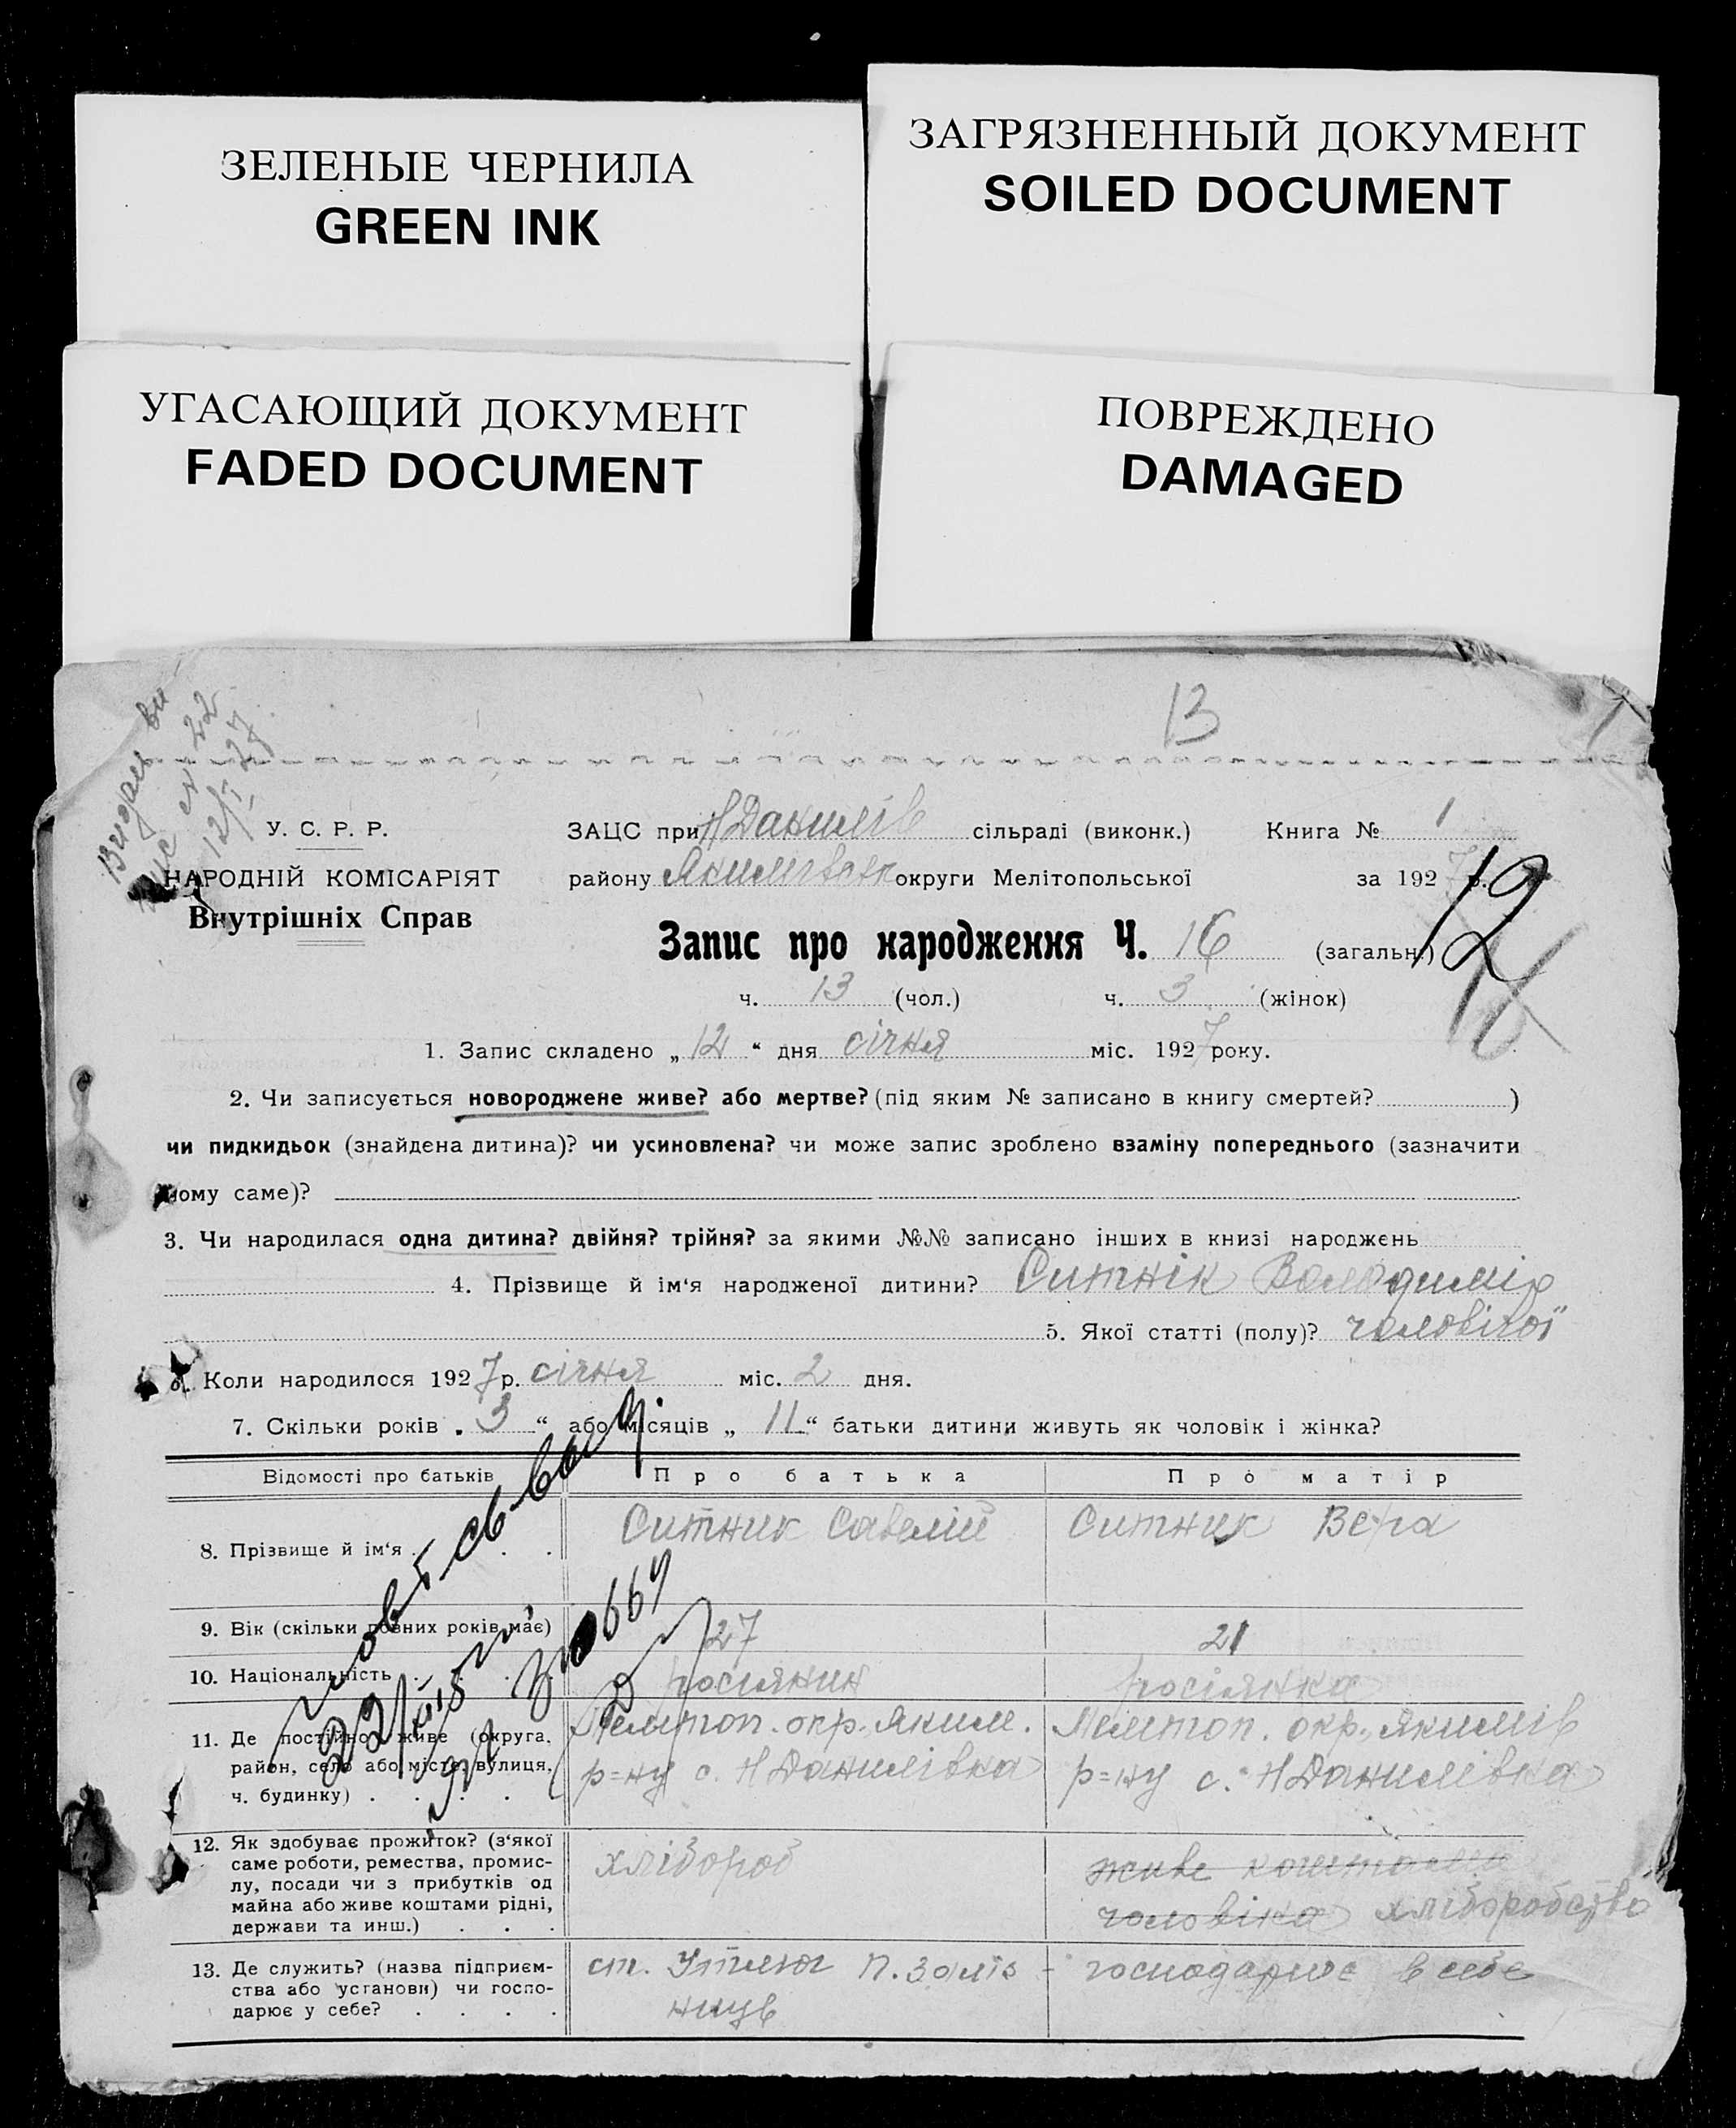 ЗЕЛЕНЫЕ ЧЕРНИЛА
GREEN INK
ЗАГРЯЗНЕННЫЙ ДОКУМЕНТ
SOILED DOCUMENT
УГАСАЮЩИЙ ДОКУМЕНТ
FADED DOCUMENT
ПОВРЕЖДЕНО
DAMAGED
13
У. С. Р. Р.
НАРОДНІЙ КОМІСАРІЯТ
Внутрішніх Справ
ЗАЦС при НДанилів сільраді (виконк.) Книга № 1
району Якимівськ округи Мелітопольської за 1927 р.
12
Запис про народження Ч. 16 (загальн.)
ч. 13 (чол.) ч. 3 (жінок)
16
1. Запис складено „12“ дня січня міс. 1927 року.
2. Чи записується новороджене живе? або мертве? (під яким № записано в книгу смертей? )
чи пидкидьок (знайдена дитина)? чи усиновлена? чи може запис зроблено взаміну попереднього (зазначити
чому саме)?
3. Чи народилася одна дитина? двійня? трійня? за якими №№ записано інших в книзі народжень
4. Прізвище й ім‘я народженої дитини? Ситнік Володимір
5. Якої статті (полу)? чоловічої
6. Коли народилося 1927 р. січня міс. 2 дня.
7. Скільки років „3“ або місяців „11“ батьки дитини живуть як чоловік і жінка?
Відомості про батьків Про батька Про матір
8. Прізвище й ім‘я . . . Ситник Савелий Ситник Вера
9. Вік (скільки повних років має) 27 21
10. Національність . . . росіянин росіянка
11. Де постійно живе (округа,
район, село або місто, вулиця,
ч. будинку) . . . .
Мелитоп. окр. Яким.
р=ну с. НДанилівка
Мелитоп. окр., Якимів
р=ну с. НДанилівка
12. Як здобуває прожиток? (з‘якої
саме роботи, ремества, промис-
лу, посади чи з прибутків од
майна або живе коштами рідні,
держави та инш.) . . .
хлібороб
живе коштами
чоловіка хліборобство
13. Де служить? (назва підприєм-
ства або установи) чи госпо-
дарює у себе? . . . .
ст. Утлюг П. Заліз -
ниць
господарює в себе